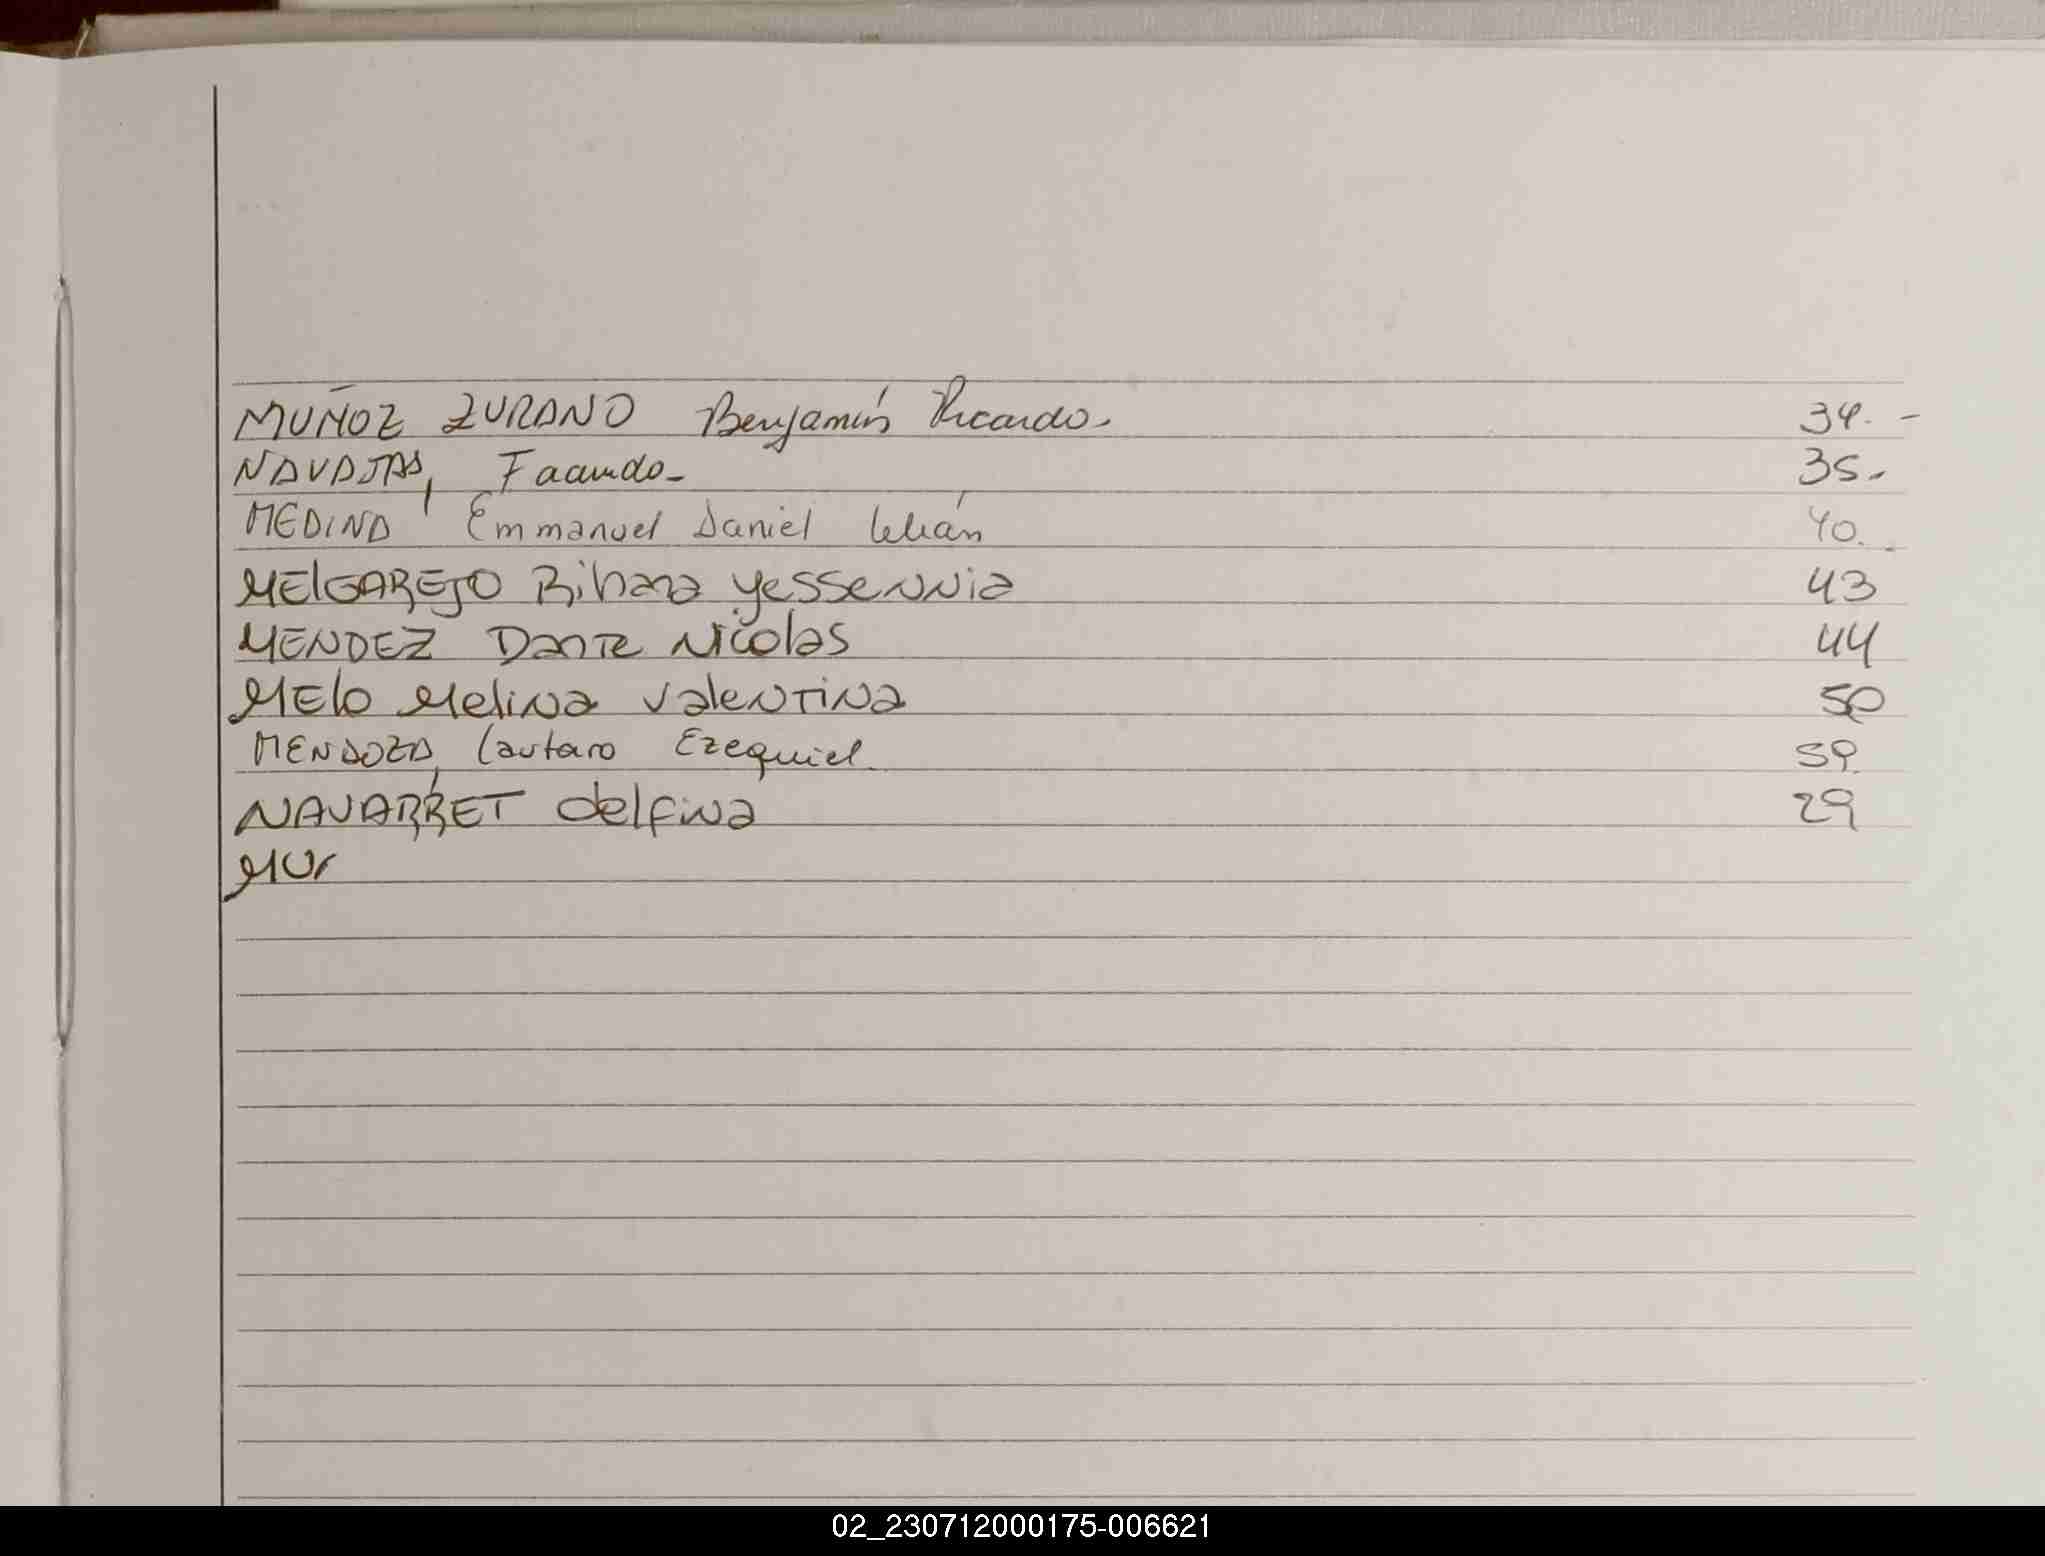 MUÑOZ ZURANO Benjamín Ricardo. 34. -
NAVAJAS, Facundo - 35.-
MEDINA, Emmanuel Daniel 40. -
MELGAREJO Rihana yessennia 43
MENDEZ Dante Nicolas 44
MELO Melina Valentina 50
MENDOZA, Lautaro Ezequiel. 59.
NAVARRET delfina 29
MUr
02_230712000175-006621